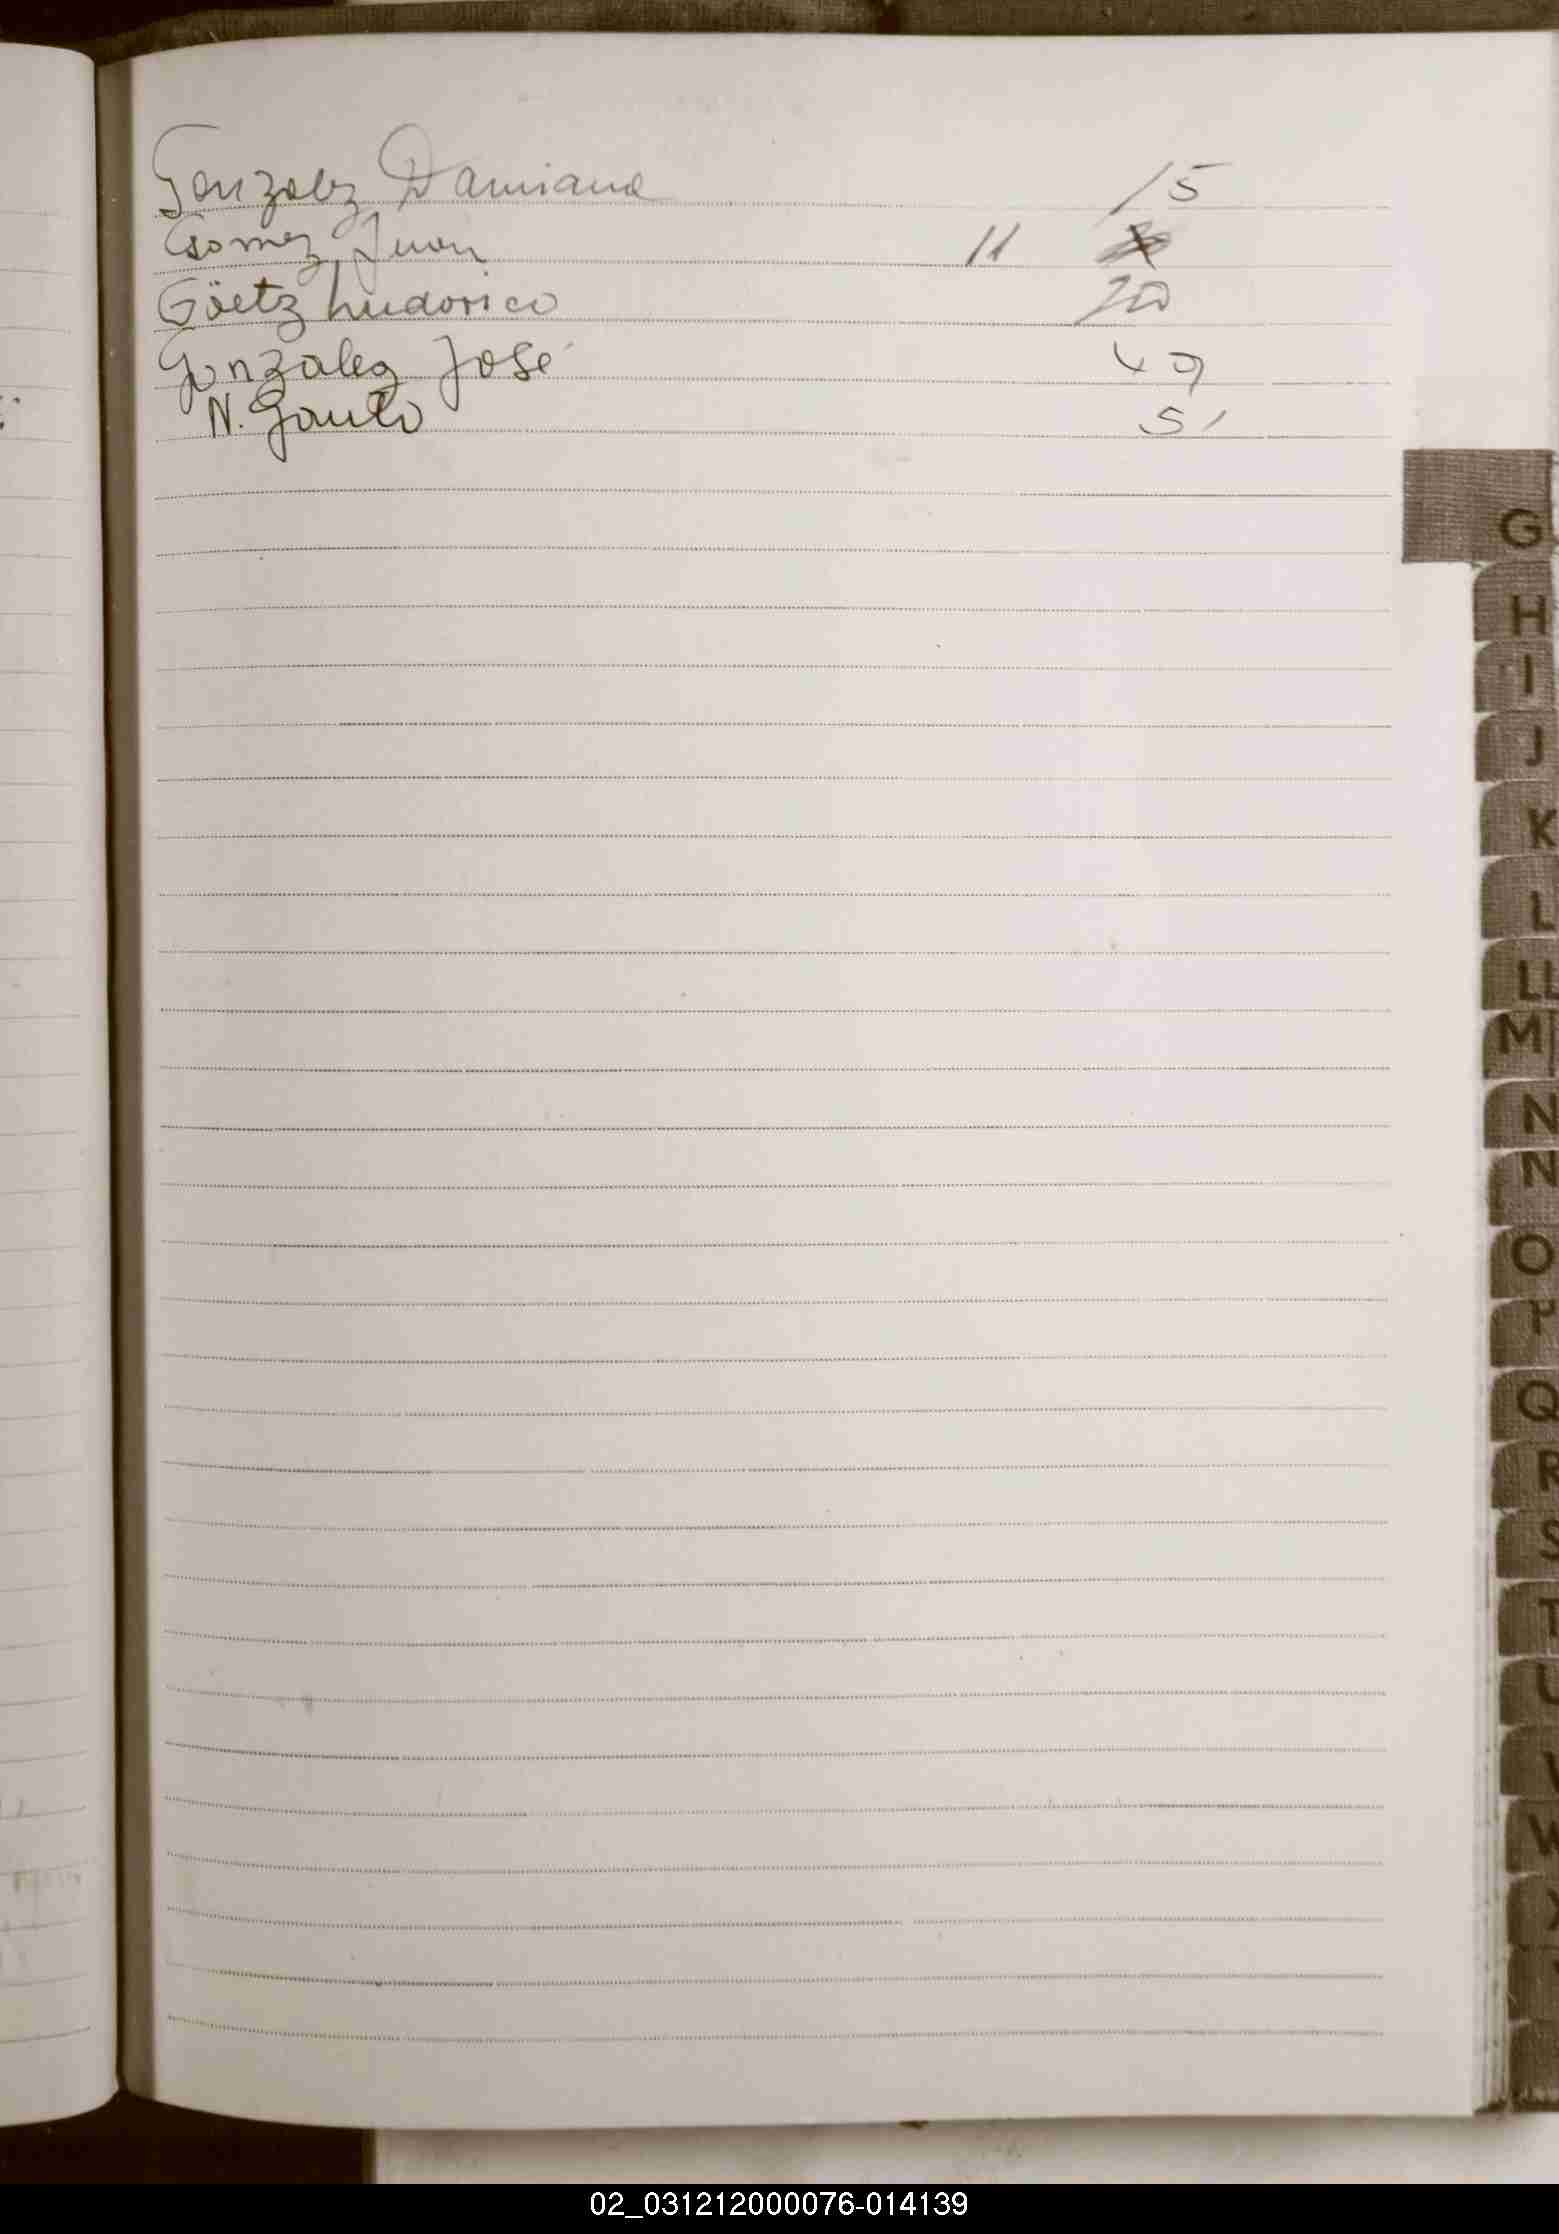 Gonzalez Damiana 15
Gomez Juan 11
Göetz Ludovico 20
Gonzalez José 49
N. Gauto 51
G
H
I
J
K
L
LL
M
N
N
O
P
Q
R
S
T
U
V
W
X
02_031212000076-014139